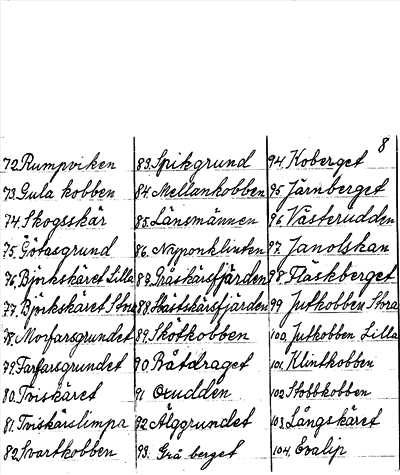 8
72. Rumpviken
73. Gula kobben
74. Skogsskär
75. Götasgrund
76. Björkskäret Lilla
77. Björkskäret Stora
78. Morfarsgrundet
79. Farfarsgrundet
80. Triskäret
81. Triskärslimpa
82. Svartkobben
83. Spikgrund
84. Mellankobben
85. Länsmännen
86. Nyponklinten
87. Gråskärsfjärden
88.
89. Skötkobben
90. Båtdraget
91 Oxudden
92. Älggrundet
93. Grå berget
94. Koberget
95. Järnberget
96. Västerudden
97. Janolskan
98. Fläskberget
99 Jutkobben Stora
100. Jutkobben Lilla
101. Klintkobben
102. Stobbkobben
103. Långskäret
104. Evalip